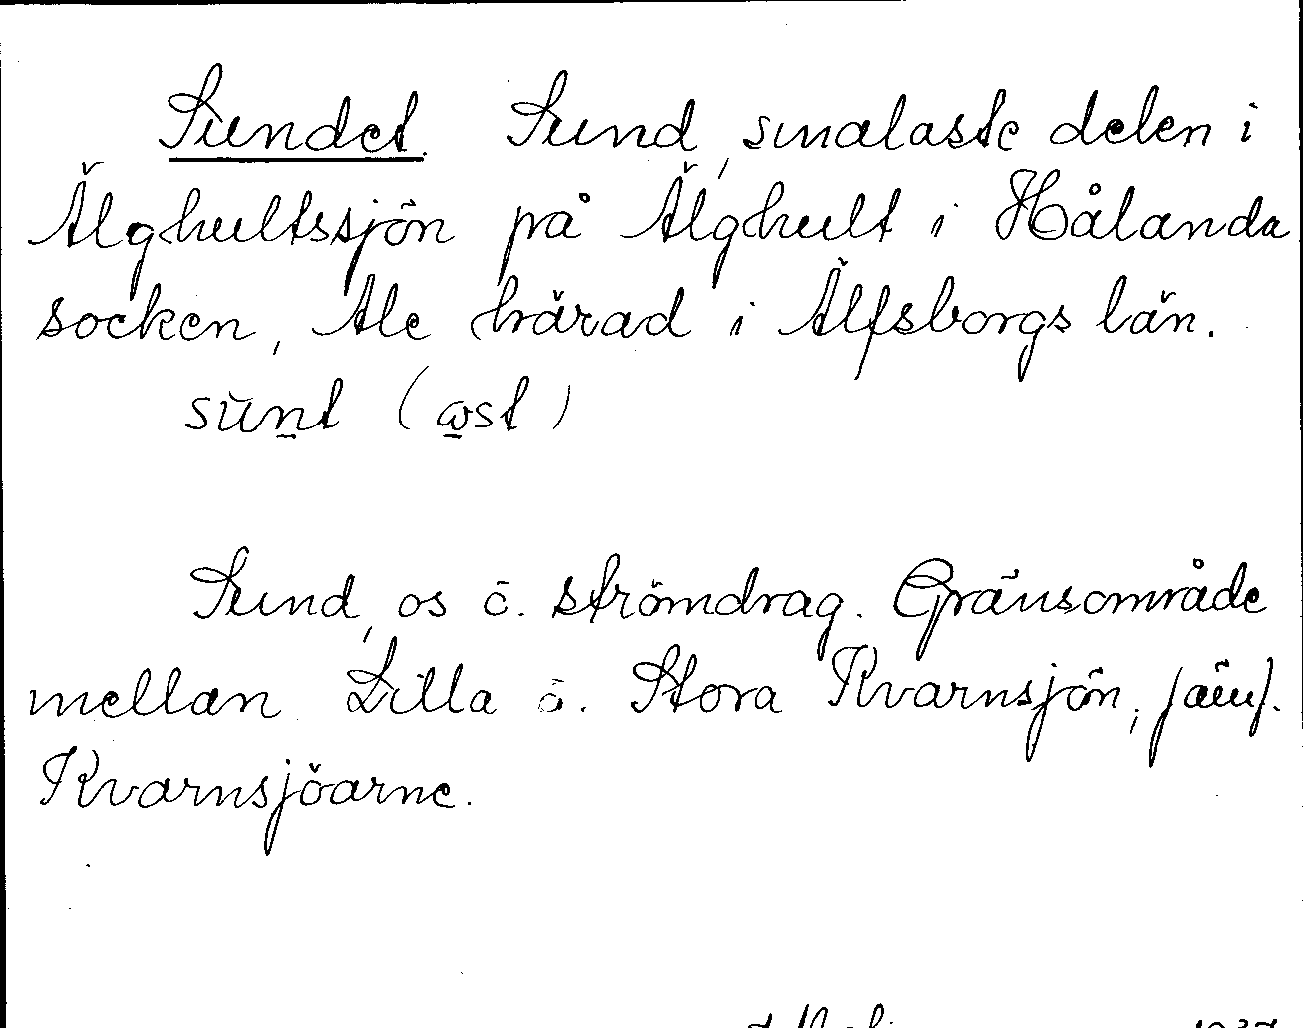 Sundet. Sund, smalaste delen i
Älghultssjön på Älghult i Hålanda
socken, Ale härad i Älfsborgs län.
sunt (ωst)
Sund, os o. strömdrag. Gränsområde
mellan Lilla o. Stora Kvarnsjön, jämf.
Kvarnsjöarne.
1937